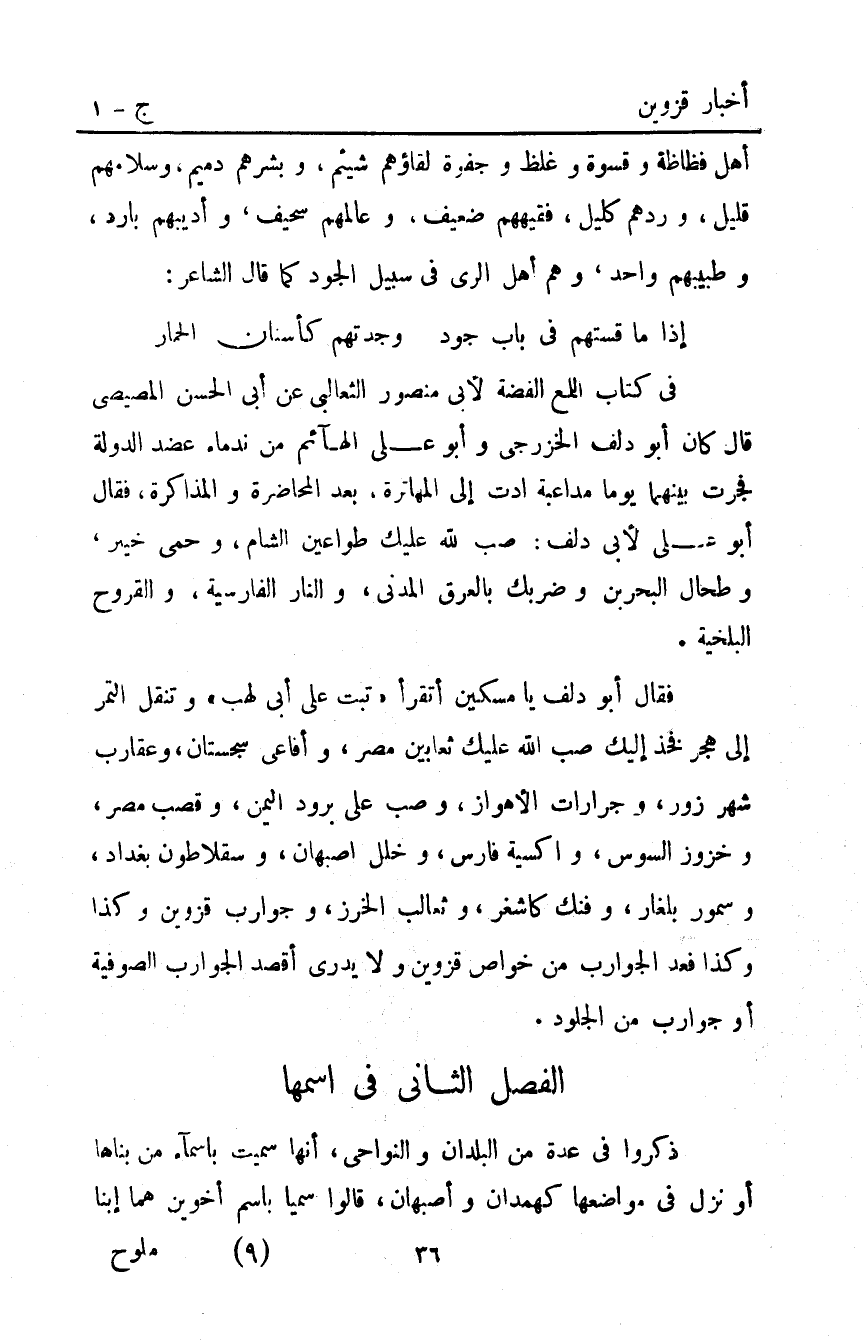 أخبار قزوين ج - ١
أهل فظاظة و قسوة و غلظ و جفوة لقاؤهم شيئم ، و بشرهم دميم ، وسلامهم
قليل ، و ردهم كليل ، فقيههم ضعيف ، و عالمهم سخيف ، و أديبهم بارد ،
و طبيبهم واحد ، و هم أهل الرى فى سبيل الجود كما قال الشاعر :
إذا ما قستهم فى باب جود وجدتهم كأسنان الحمار
فى كتاب اللمع الفضة لأبى منصور الثعالبى عن أبى الحسن المصيصى
قال كان أبو دلف الخزرجى و أبو عــلى الهـآئم من ندماء عضد الدولة
فجرت بينهما يوما مداعبة ادت إلى المهاترة ، بعد المحاضرة و المذاكرة ، فقال
أبو عــلى لأبى دلف : صب لله عليك طواعين الشام ، و حمى خيبر ،
و طحال البحرين و ضربك بالعرق المدنى ، و النار الفارسية ، و القروح
البلخية .
فقال أبو دلف يا مسكين أتقرأ « تبت على أبى لهب » و تنقل التمر
إلى هجر فخذ إليك صب الله عليك ثعابين مصر ، و أفاعى سجستان ، وعقارب
شهر زور ، و جرارات الأهواز ، و صب على برود اليمن ، و قصب مصر ،
و خزوز السوس ، و اكسية فارس ، و خلل اصبهان ، و سقلاطون بغداد ،
و سمور بلغار ، و فنك كاشغر ، و ثعالب الخرز ، و جوارب قزوين و كذا
وكذا فعد الجوارب من خواص قزوين و لا يدرى أقصد الجوارب الصوفية
أو جوارب من الجلود .
الفصل الثـانى فى اسمها
ذكروا فى عدة من البلدان و النواحى ، أنها سميت باسمآء من بناها
أو نزل فى مواضعها كهمدان و أصبهان ، قالوا سميا باسم أخوين هما إبنا
٣٦ (٩) ملوح